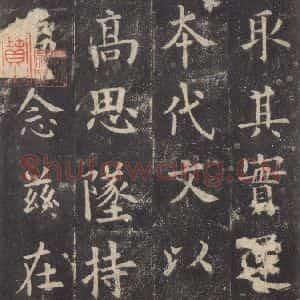 耴其實
夲代文以
髙思墜持
念茲在
Shufawang.cn